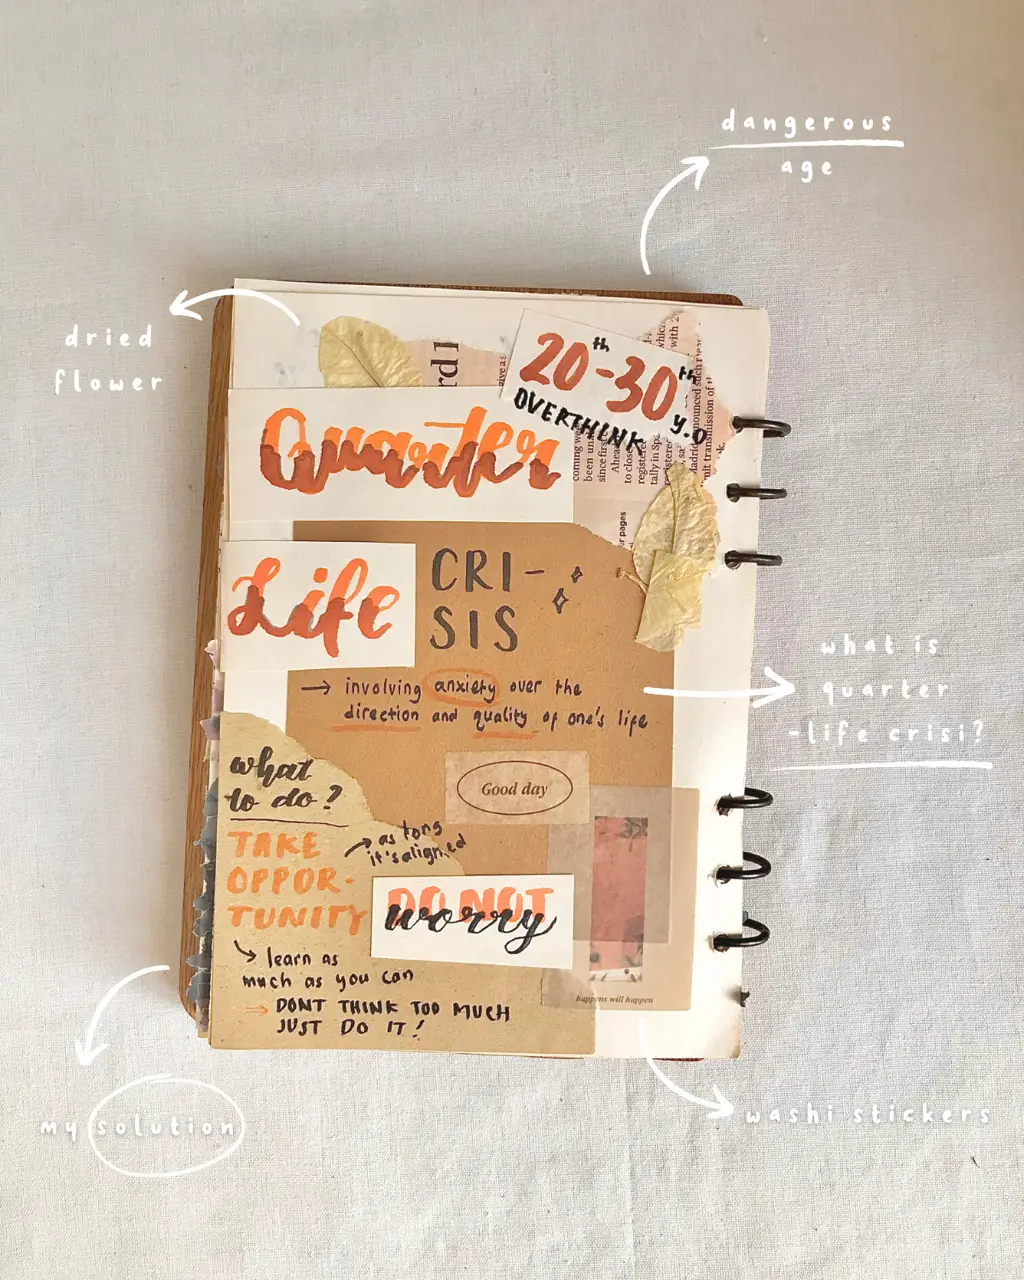 dangerous
age
dried
flower
20th-30th
y.o
OVERTHINK
Quarter
Life
CRI-
SIS
→ involving anxiety over the
direction and quality of one's life
what is
quarter
-life crisi?
what
to do?
Good day
TAKE
OPPOR-
TUNITY
→ as long
it's aligned
DO NOT
worry
→ learn as
much as you can
→ DONT THINK TOO MUCH
JUST DO IT!
happens will happen
my solution
washi stickers